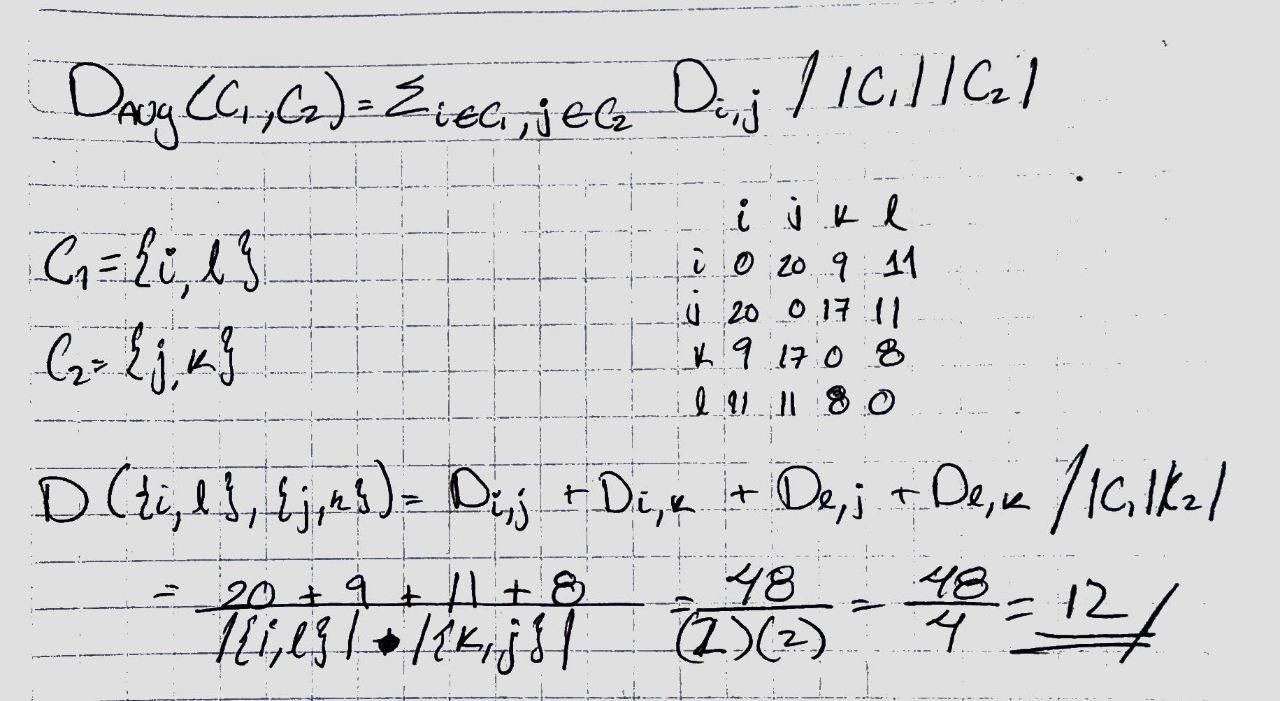 D_Avg (C₁, C₂) = Σ i∈C₁, j∈C₂ D_i,j / |C₁| |C₂|
i j k l
C₁ = {i, l}
i 0 20 9 11
j 20 0 17 11
C₂ = {j, k}
k 9 17 0 8
l 11 11 8 0
D ({i, l}, {j, k}) = D_i,j + D_i,k + D_l,j + D_l,k / |C₁||C₂|
= 20 + 9 + 11 + 8 / |{i, l}| • |{k, j}| = 48 / (2)(2) = 48 / 4 = 12 /